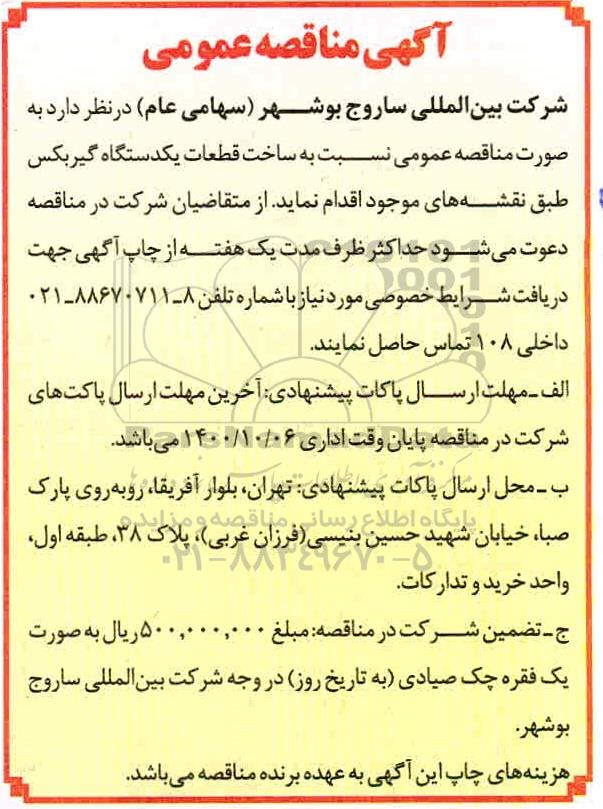 آگهی مناقصه عمومی
شرکت بین‌المللی ساروج بوشهر (سهامی عام) درنظر دارد به
صورت مناقصه عمومی نسبت به ساخت قطعات یکدستگاه گیربکس
طبق نقشه‌های موجود اقدام نماید. از متقاضیان شرکت در مناقصه
دعوت می‌شود حداکثر ظرف مدت یک هفته از چاپ آگهی جهت
دریافت شرایط خصوصی مورد نیاز با شماره تلفن ۸ـ۸۸۶۷۰۷۱۱ـ۰۲۱
داخلی ۱۰۸ تماس حاصل نمایند.
الف ـ مهلت ارسال پاکات پیشنهادی: آخرین مهلت ارسال پاکت‌های
شرکت در مناقصه پایان وقت اداری ۱۴۰۰/۱۰/۰۶ می‌باشد.
ب ـ محل ارسال پاکات پیشنهادی: تهران، بلوار آفریقا، روبه‌روی پارک
صبا، خیابان شهید حسین بنیسی(فرزان غربی)، پلاک ۳۸، طبقه اول،
واحد خرید و تدارکات.
ج ـ تضمین شرکت در مناقصه: مبلغ ۵۰۰,۰۰۰,۰۰۰ ریال به صورت
یک فقره چک صیادی (به تاریخ روز) در وجه شرکت بین‌المللی ساروج
بوشهر.
هزینه‌های چاپ این آگهی به عهده برنده مناقصه می‌باشد.
ParsNamadData
پایگاه اطلاع رسانی مناقصه و مزایده
۰۲۱-۸۸۳۴۹۶۷۰-۵